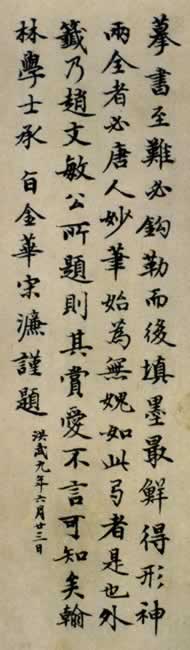 摹書至難必鈎勒而後填墨最鮮得形神
兩全者必唐人妙筆始為無媿如此弓者是也外
籤乃趙文敏公所題則其賞愛不言可知矣翰
林學士承旨金華宋濂謹題
洪武九年六月廿三日